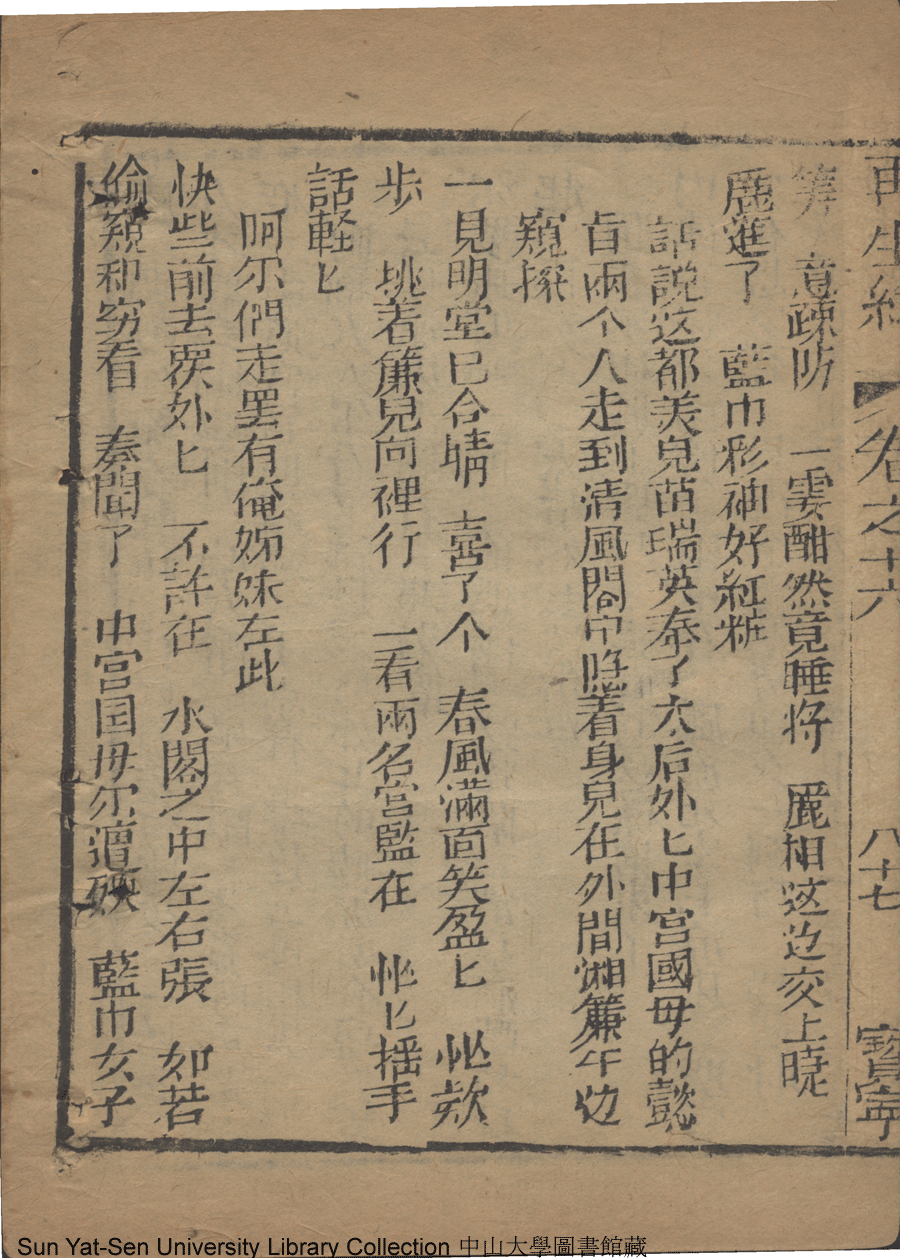 再生緣 卷之十六 八十七 寶寧
筭 意疎防 一霎酣然竟睡将 麗相这边交上睫
麗進了 藍巾彩袖好紅粧
話說这都美兒苗瑞英奉了太后外匕中宮國母的懿
旨兩个人走到清風閣中隐着身兒在外間湘簾午边
窺探
一見明堂已合晴 喜了个 春風滿面笑盈匕 忙欸
步 挑着簾兒向裡行 一看兩名宮監在 忙匕揺手
話軽匕
呵尔們走罢有俺姊妹在此
快些前去要外匕 不許在 水閣之中左右張 如若
偷窺和窃看 奏聞了 中宮国母尔遭殃 藍巾女子
Sun Yat-Sen University Library Collection 中山大學圖書館藏